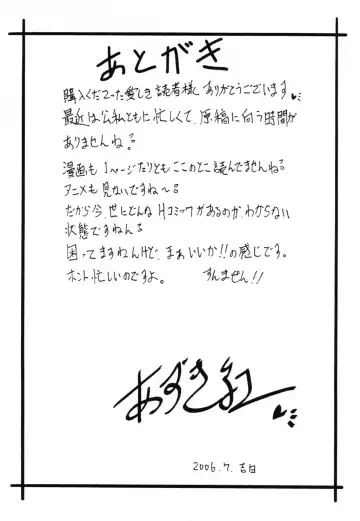 あとがき
購入くださった愛しき読者様 ありがとうございます
最近は公私ともに忙しくて、原稿に向う時間が
ありませんね。
漫画も1ページたりともここのとこ読んでませんね
アニメも見ないですね〜
だから今、世にどんなHコミックがあるのか、わからない
状態ですねん
困ってますねんけど、まぁいいか!!の感じです。
ホント忙しいのですよ。 すんません!!
あずき紅
2006.7.吉日